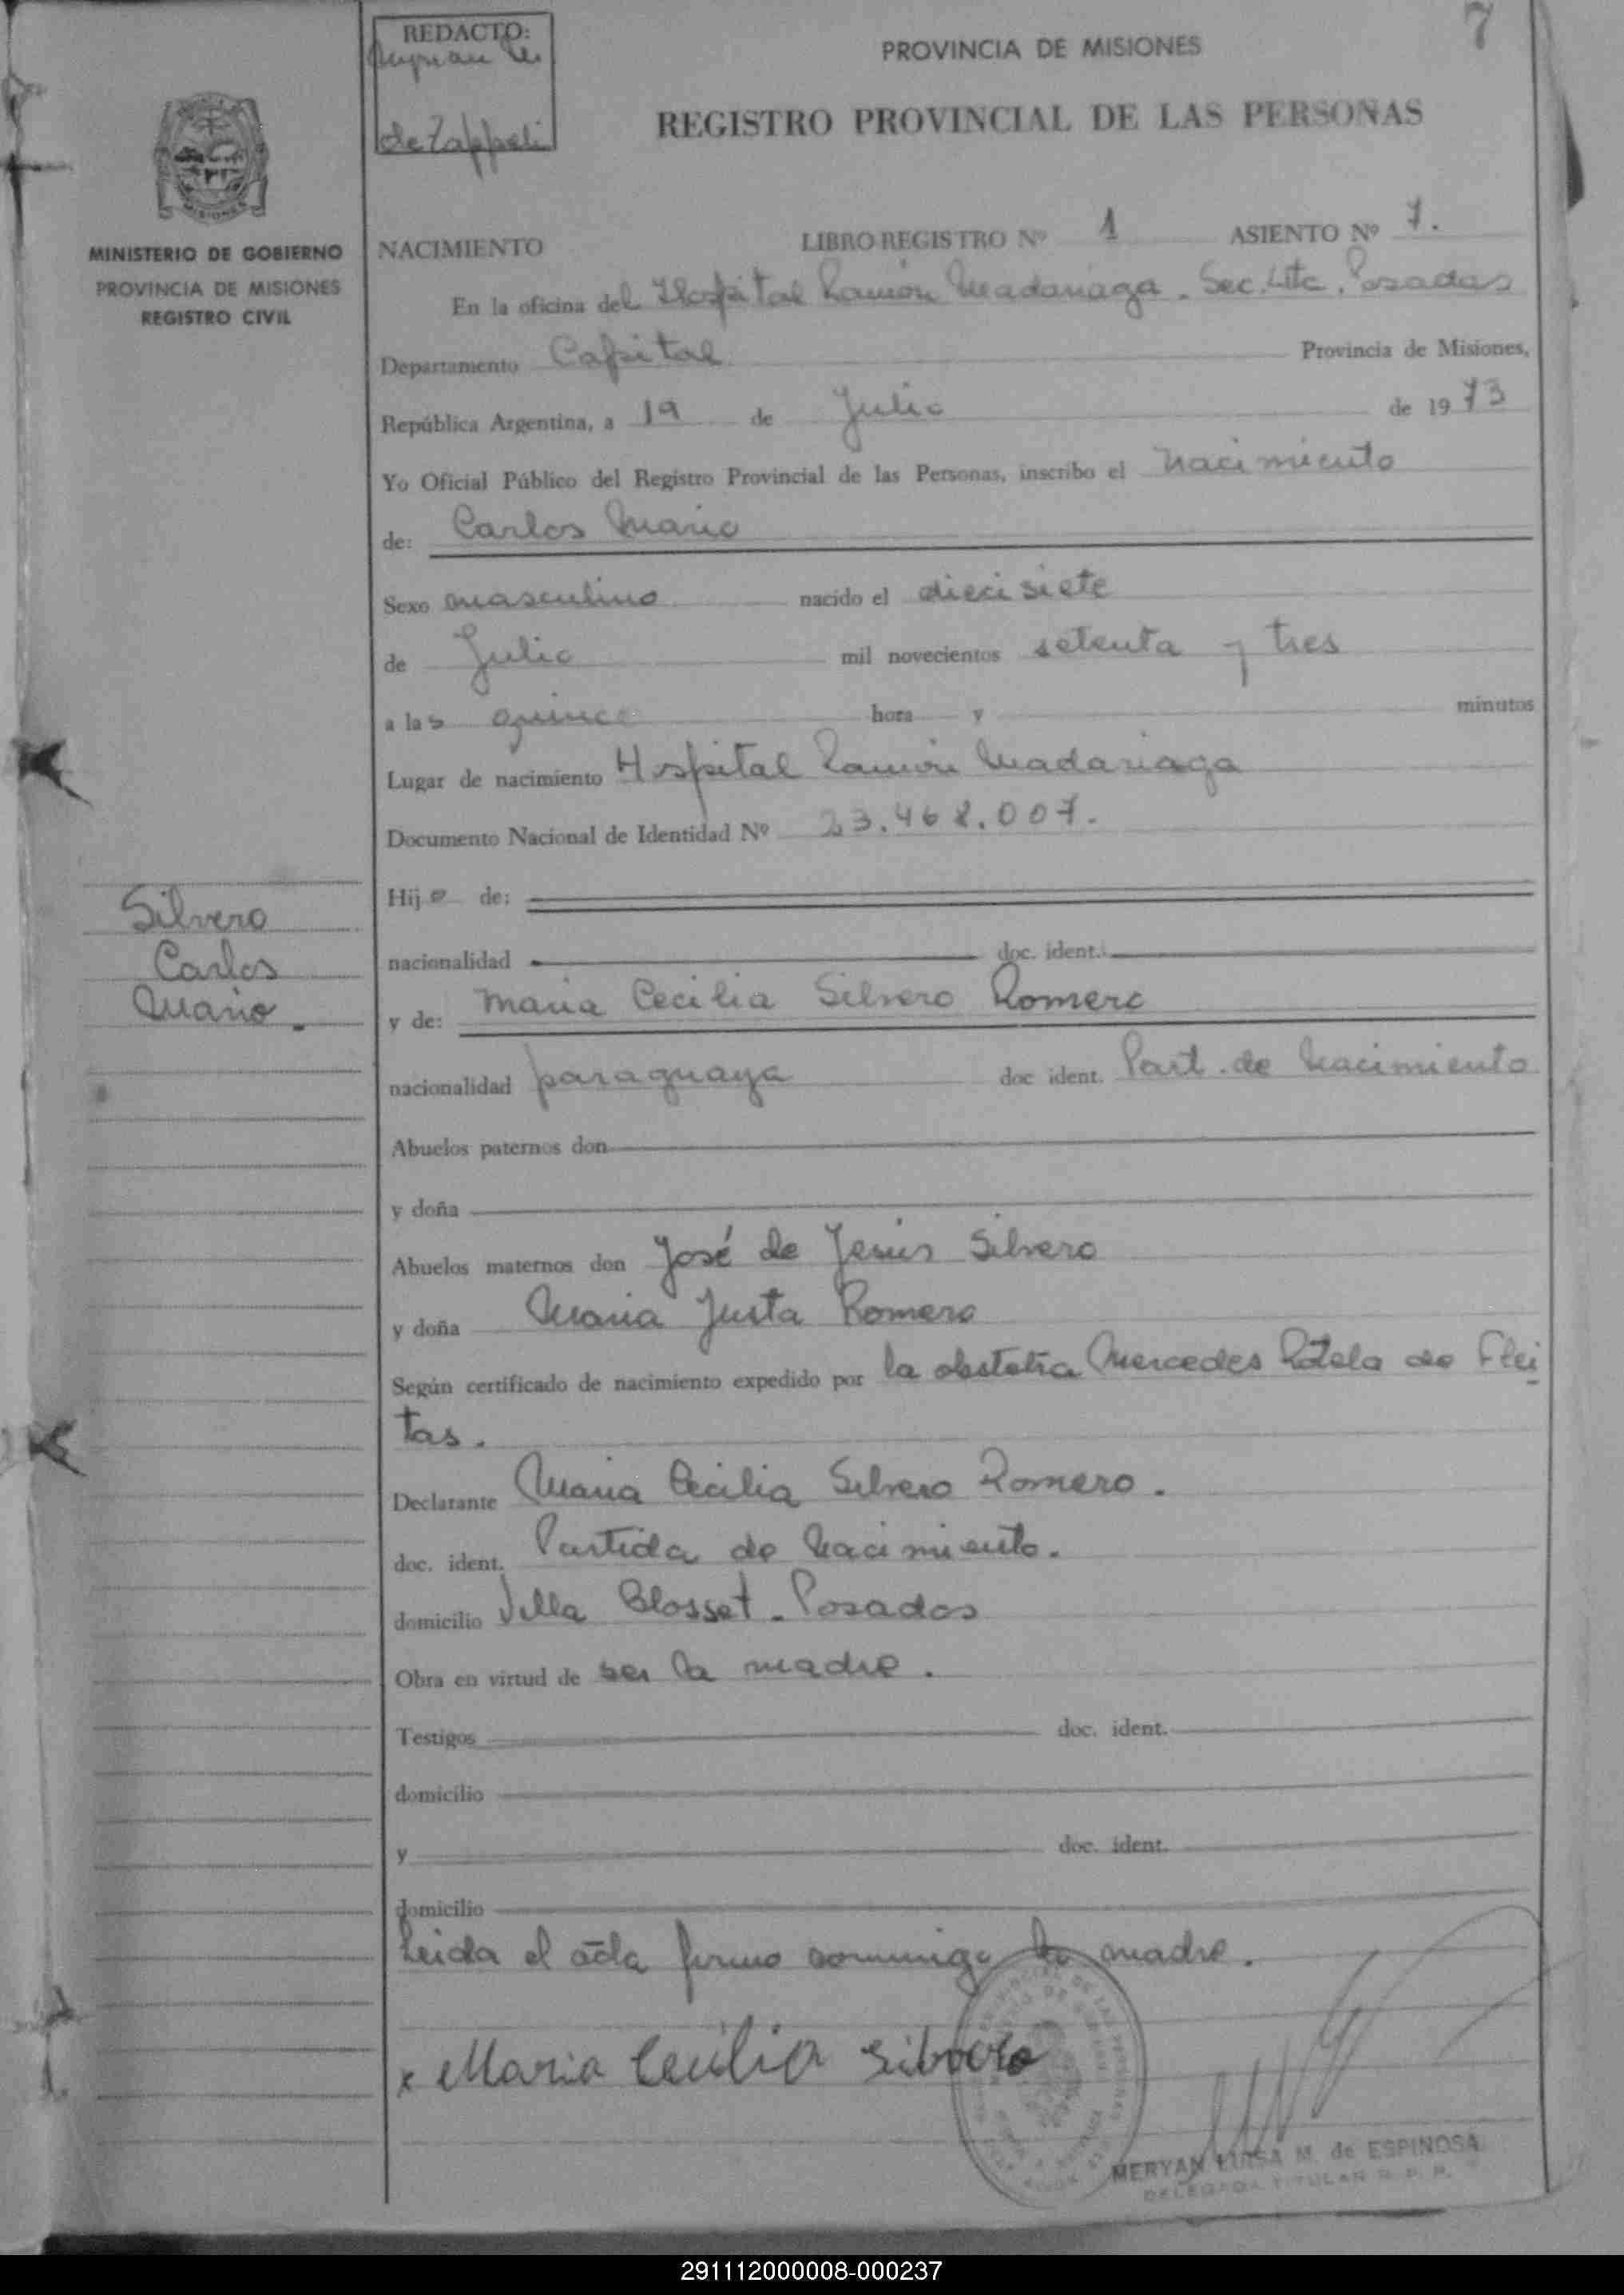 7
REDACTO:
de Zappeli
PROVINCIA DE MISIONES
REGISTRO PROVINCIAL DE LAS PERSONAS
MINISTERIO DE GOBIERNO
PROVINCIA DE MISIONES
REGISTRO CIVIL
NACIMIENTO LIBRO REGISTRO Nº 1 ASIENTO Nº 7.
En la oficina del Hospital Ramón Madariaga. Sec. Posadas
Departamento Capital Provincia de Misiones,
República Argentina, a 19 de Julio de 1973
Yo Oficial Público del Registro Provincial de las Personas, inscribo el nacimiento
de: Carlos Mario
Sexo masculino nacido el diecisiete
de Julio mil novecientos setenta y tres
a las quince hora y minutos
Lugar de nacimiento Hospital Ramón Madariaga
Documento Nacional de Identidad Nº 23.468.007.
Hijo de:
nacionalidad doc. ident.
Silvero
Carlos
Mario.
y de: Maria Cecilia Silvero Romero
nacionalidad paraguaya doc ident. Part. de Nacimiento
Abuelos paternos don
y doña
Abuelos maternos don José de Jesús Silvero
y doña Maria Justa Romero
Según certificado de nacimiento expedido por la obstetra Mercedes Rotela de Flei
tas.
Declarante Maria Cecilia Silvero Romero.
doc. ident. Partida de Nacimiento.
domicilio Villa Blosset - Posadas
Obra en virtud de ser la madre.
Testigos doc. ident.
domicilio
y doc. ident.
domicilio
Leida el acta firma conmigo la madre.
x Maria Cecilia Silvero
MERYAN LUISA M. de ESPINOSA
DELEGADA TITULAR R. P. P.
291112000008-000237